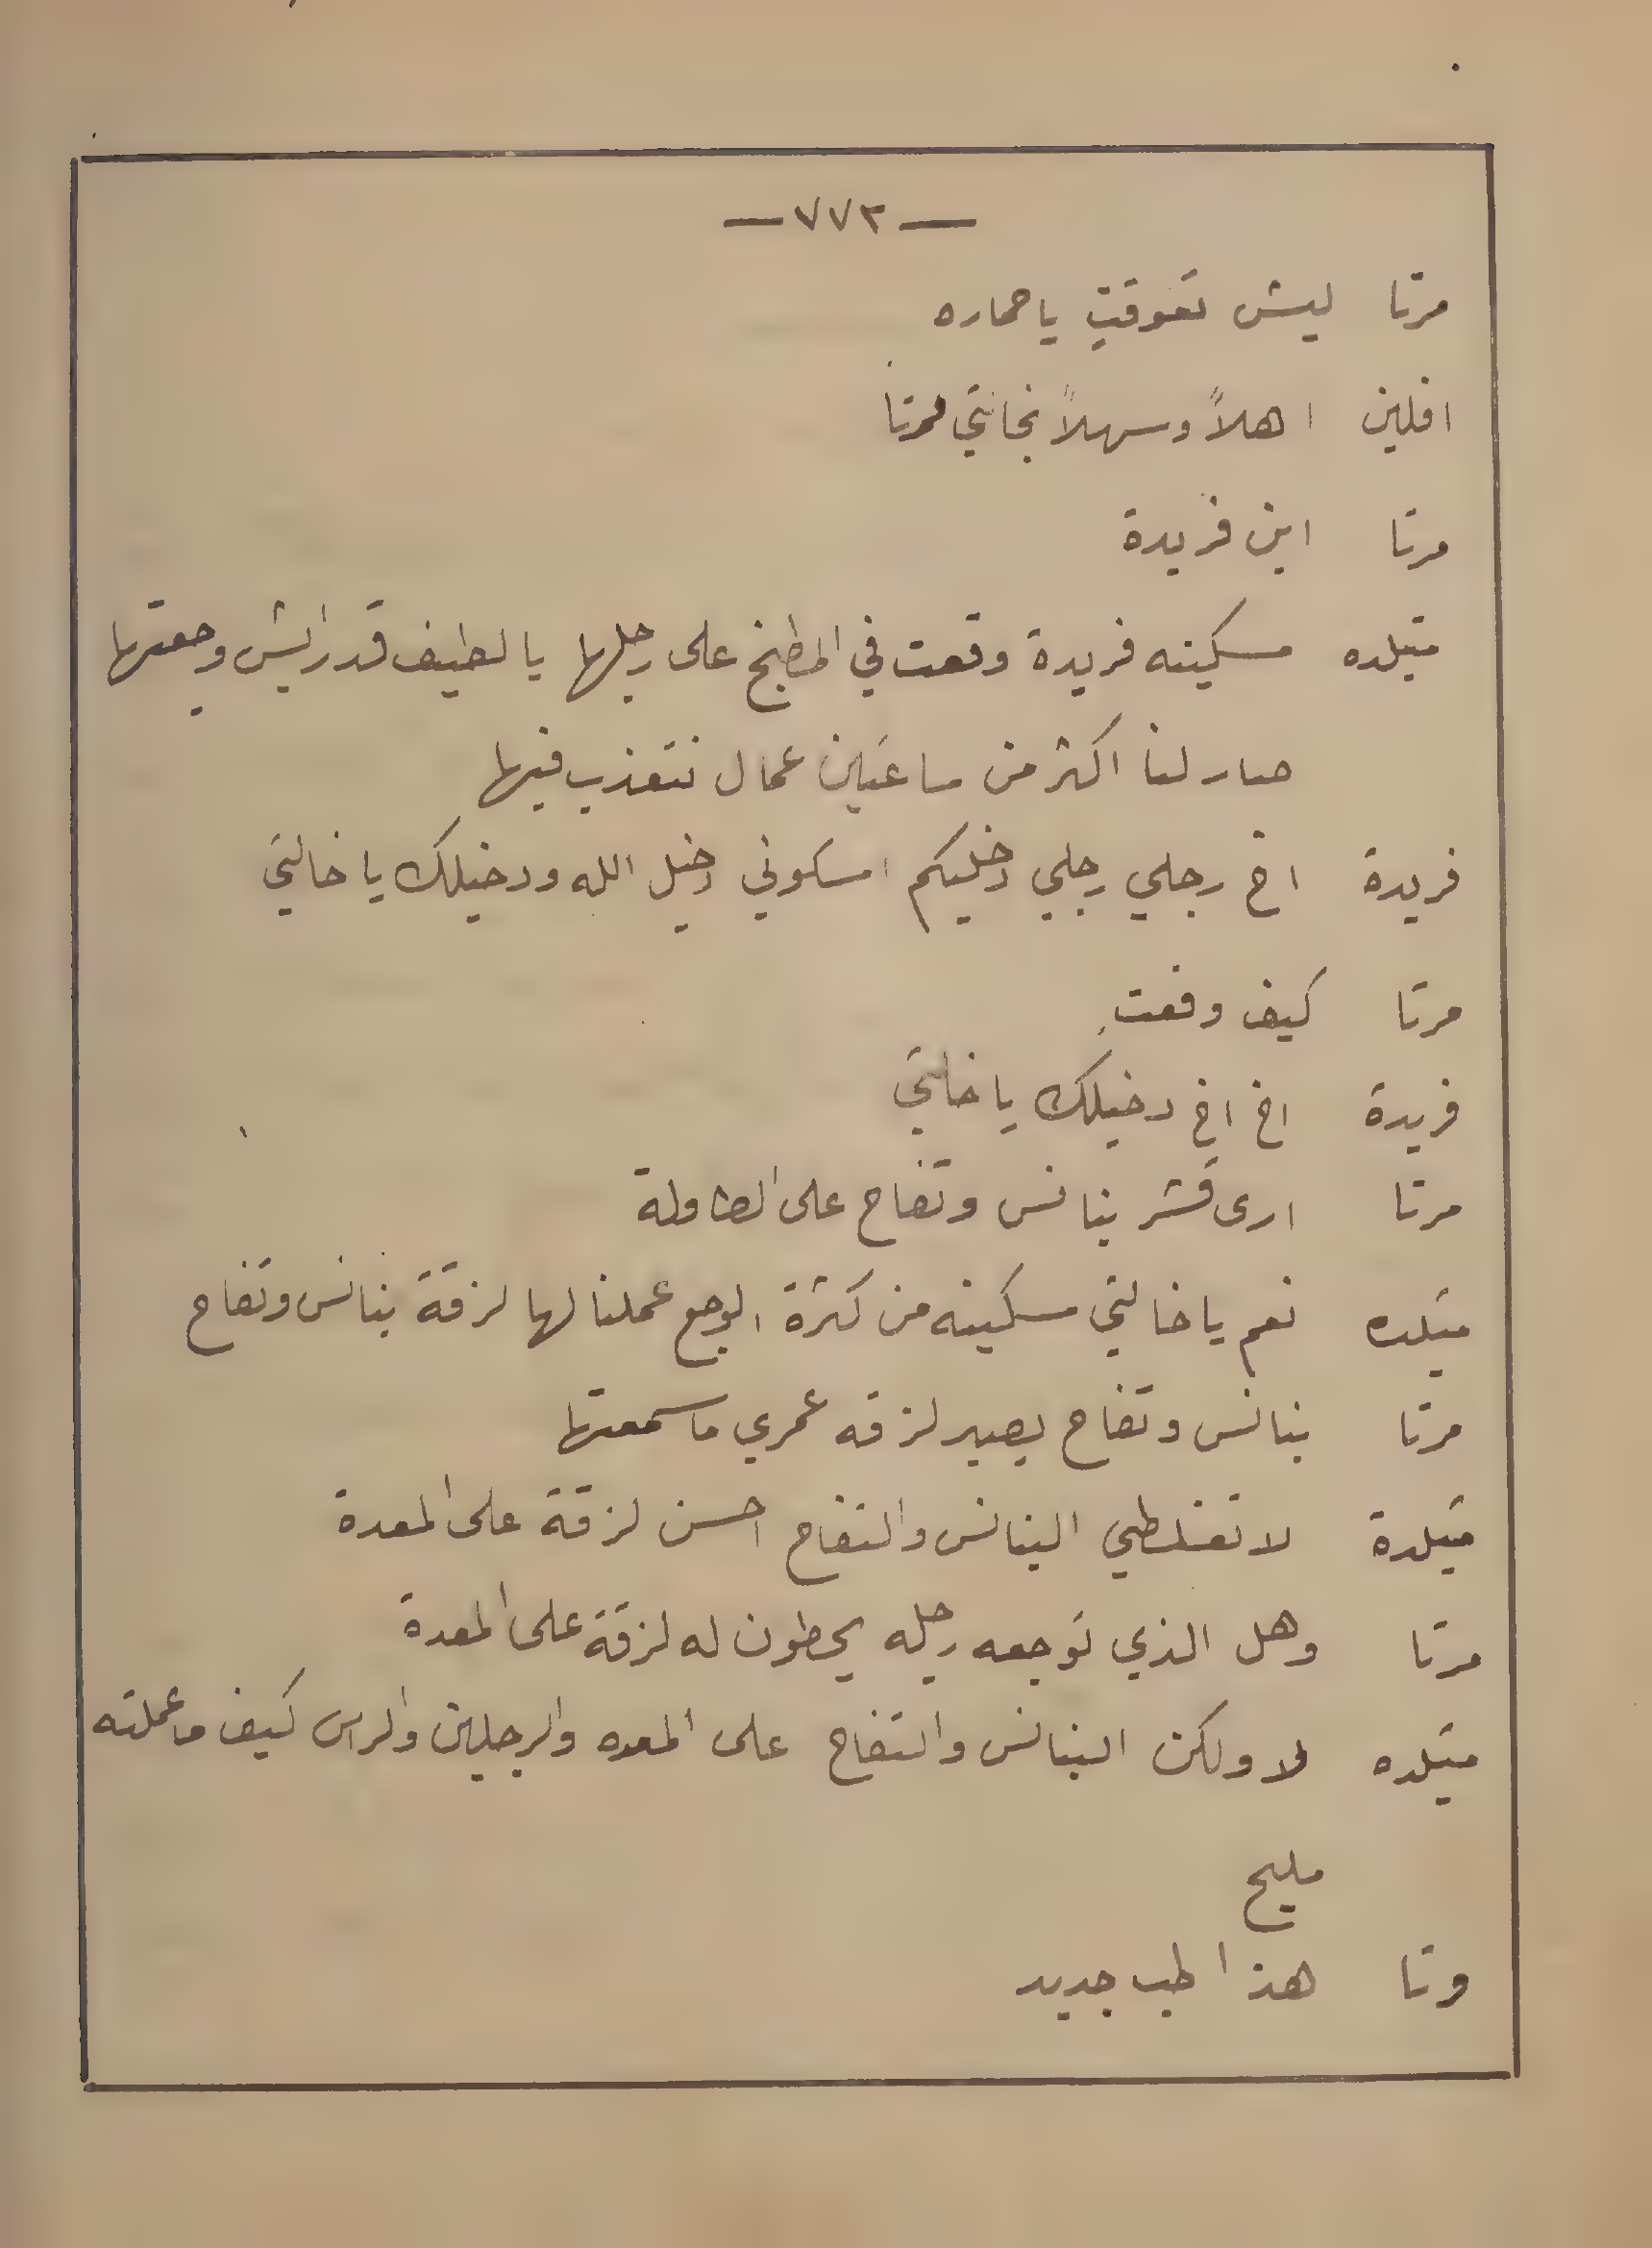 — ٧٧٢ —
مرتا ليش تعوقتِ يا حماره
افلين اهلاً وسهلاً بخالتي مرتا
مرتا اين فريدة
متيلده مسكينه فريدة وقعت في المطبخ على رجلها يا لطيف قدرايش وجعتها
صار لنا اكثر من ساعتين عمال نتعذب فيها
فريدة اخ رجلي رجلي دخليكم امسكوني دخيل الله ودخيلك يا خالتي
مرتا كيف وقعتِ
فريدة اخ اخ دخيلك يا خالتي
مرتا ارى قشر بنانس وتفاح على الطاولة
متيلده نعم يا خالتي مسكينه من كثرة الوجع عملنا لها لزقة بنانس وتفاح
مرتا بنانس وتفاح يصير لزقه عمري ما سمعتها
متيلدة لا تغلطي البنانس والتفاح احسن لزقة على المعدة
مرتا وهل الذي توجعه رجله يحطون له لزقة على المعدة
متيلده لا ولكن البنانس والتفاح على المعده والرجلين والراس كيف ما عملته
مليح
مرتا هذا طب جديد